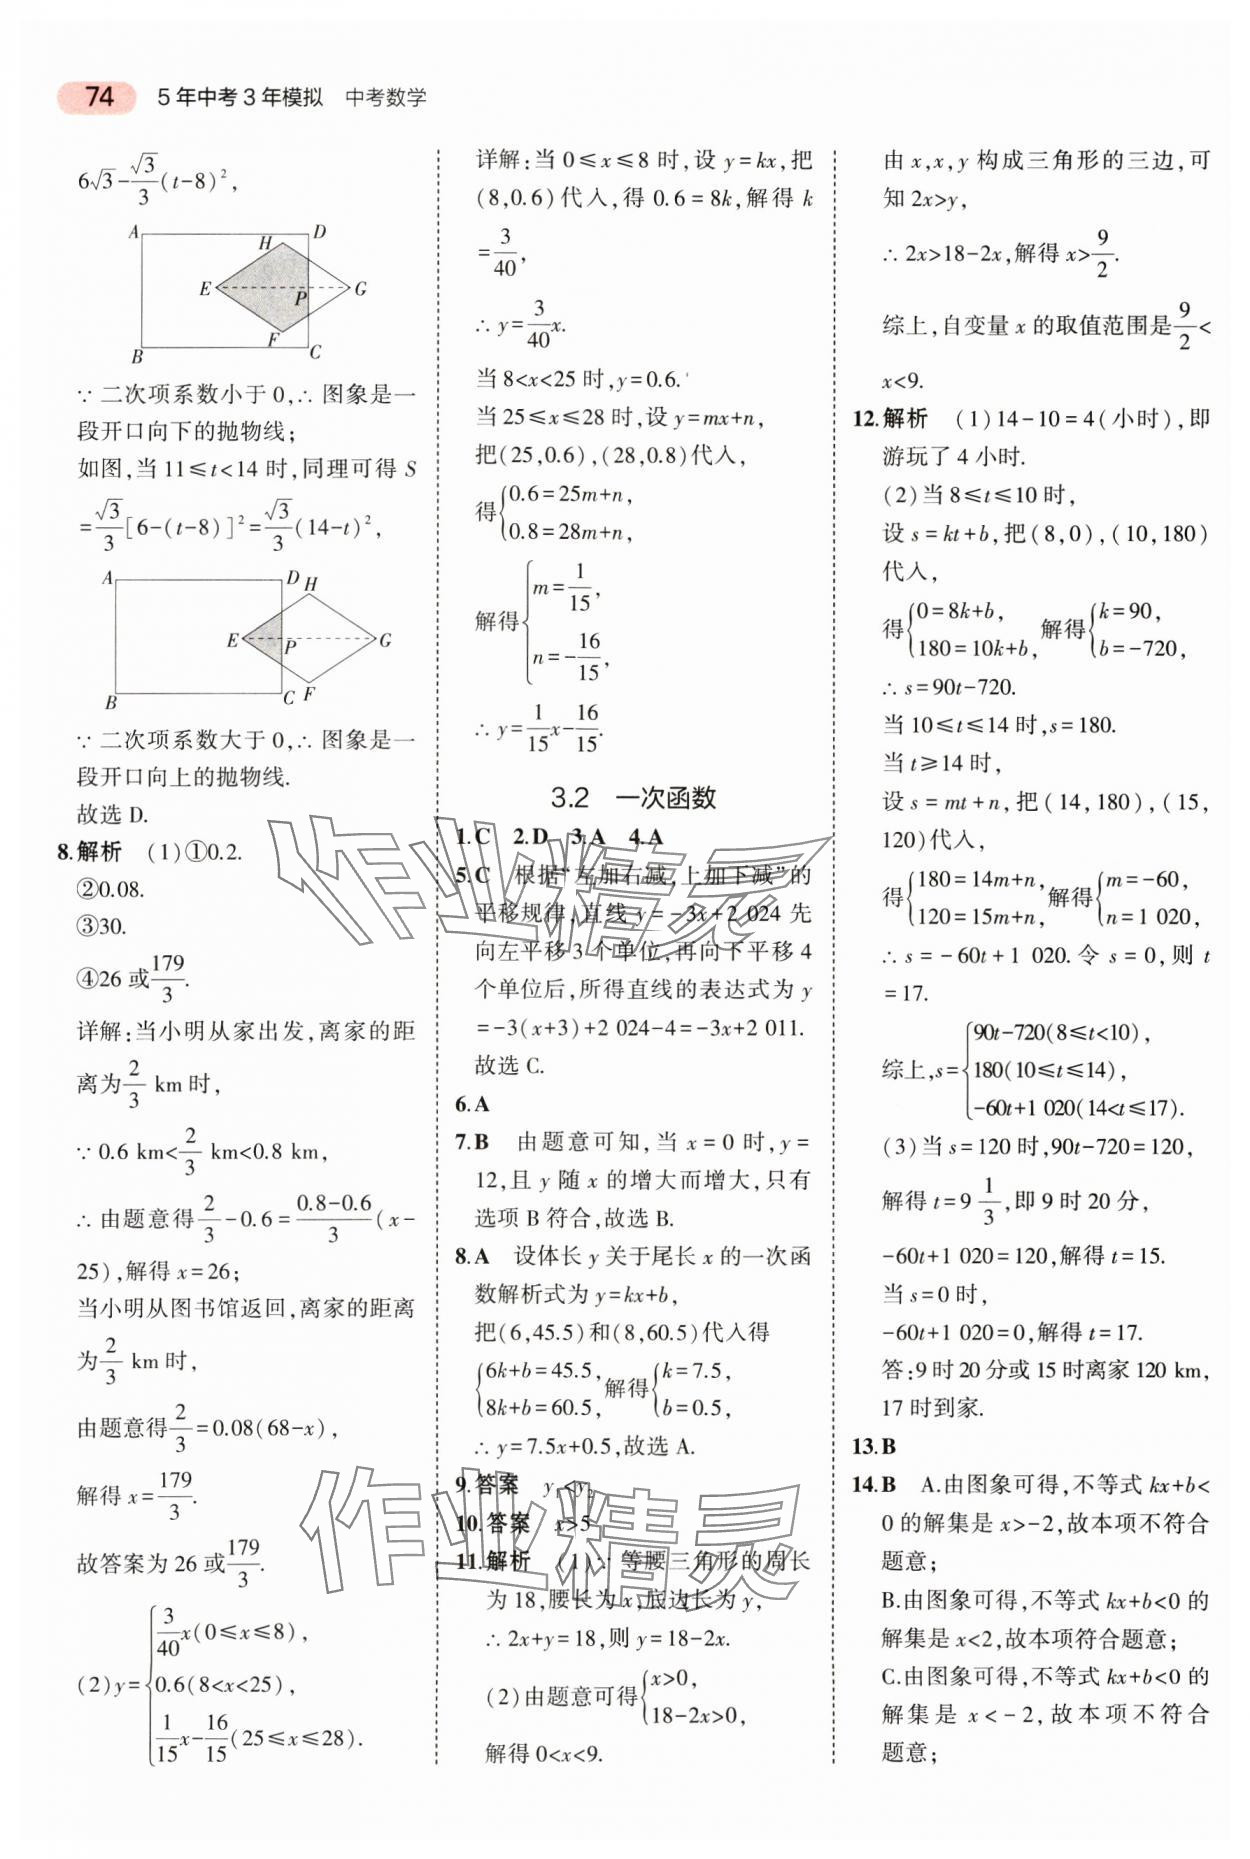 74 5年中考3年模拟 中考数学
6√3-√3/3(t-8)²,
A H D
E P G
F
B C
∵二次项系数小于0,∴图象是一
段开口向下的抛物线;
如图,当11≤t<14时,同理可得S
=√3/3[6-(t-8)]²=√3/3(14-t)²,
A D H
E P G
B C F
∵二次项系数大于0,∴图象是一
段开口向上的抛物线.
故选D.
8.解析 (1)①0.2.
②0.08.
③30.
④26或179/3.
详解:当小明从家出发,离家的距
离为2/3 km时,
∵0.6 km<2/3 km<0.8 km,
∴由题意得2/3-0.6=(0.8-0.6)/3(x-
25),解得x=26;
当小明从图书馆返回,离家的距离
为2/3 km时,
由题意得2/3=0.08(68-x),
解得x=179/3.
故答案为26或179/3.
(2)y={3/40x(0≤x≤8),
0.6(8<x<25),
1/15x-16/15(25≤x≤28).
详解:当0≤x≤8时,设y=kx,把
(8,0.6)代入,得0.6=8k,解得k
=3/40,
∴y=3/40x.
当8<x<25时,y=0.6.
当25≤x≤28时,设y=mx+n,
把(25,0.6),(28,0.8)代入,
得{0.6=25m+n,
0.8=28m+n,
解得{m=1/15,
n=-16/15,
∴y=1/15x-16/15.
3.2 一次函数
1.C 2.D 3.A 4.A
5.C 根据“左加右减,上加下减”的
平移规律,直线y=-3x+2 024先
向左平移3个单位,再向下平移4
个单位后,所得直线的表达式为y
=-3(x+3)+2 024-4=-3x+2 011.
故选C.
6.A
7.B 由题意可知,当x=0时,y=
12,且y随x的增大而增大,只有
选项B符合,故选B.
8.A 设体长y关于尾长x的一次函
数解析式为y=kx+b,
把(6,45.5)和(8,60.5)代入得
{6k+b=45.5, 解得{k=7.5,
8k+b=60.5, b=0.5,
∴y=7.5x+0.5,故选A.
9.答案 y₁<y₂
10.答案 x>5
11.解析 (1)∵等腰三角形的周长
为18,腰长为x,底边长为y,
∴2x+y=18,则y=18-2x.
(2)由题意可得{x>0,
18-2x>0,
解得0<x<9.
由x,x,y构成三角形的三边,可
知2x>y,
∴2x>18-2x,解得x>9/2.
综上,自变量x的取值范围是9/2<
x<9.
12.解析 (1)14-10=4(小时),即
游玩了4小时.
(2)当8≤t≤10时,
设s=kt+b,把(8,0),(10,180)
代入,
得{0=8k+b, 解得{k=90,
180=10k+b, b=-720,
∴s=90t-720.
当10≤t≤14时,s=180.
当t≥14时,
设s=mt+n,把(14,180),(15,
120)代入,
得{180=14m+n, 解得{m=-60,
120=15m+n, n=1 020,
∴s=-60t+1 020.令s=0,则t
=17.
综上,s={90t-720(8≤t<10),
180(10≤t≤14),
-60t+1 020(14<t≤17).
(3)当s=120时,90t-720=120,
解得t=9 1/3,即9时20分,
-60t+1 020=120,解得t=15.
当s=0时,
-60t+1 020=0,解得t=17.
答:9时20分或15时离家120 km,
17时到家.
13.B
14.B A.由图象可得,不等式kx+b<
0的解集是x>-2,故本项不符合
题意;
B.由图象可得,不等式kx+b<0的
解集是x<2,故本项符合题意;
C.由图象可得,不等式kx+b<0的
解集是x<-2,故本项不符合
题意;
作业精灵
作业精灵